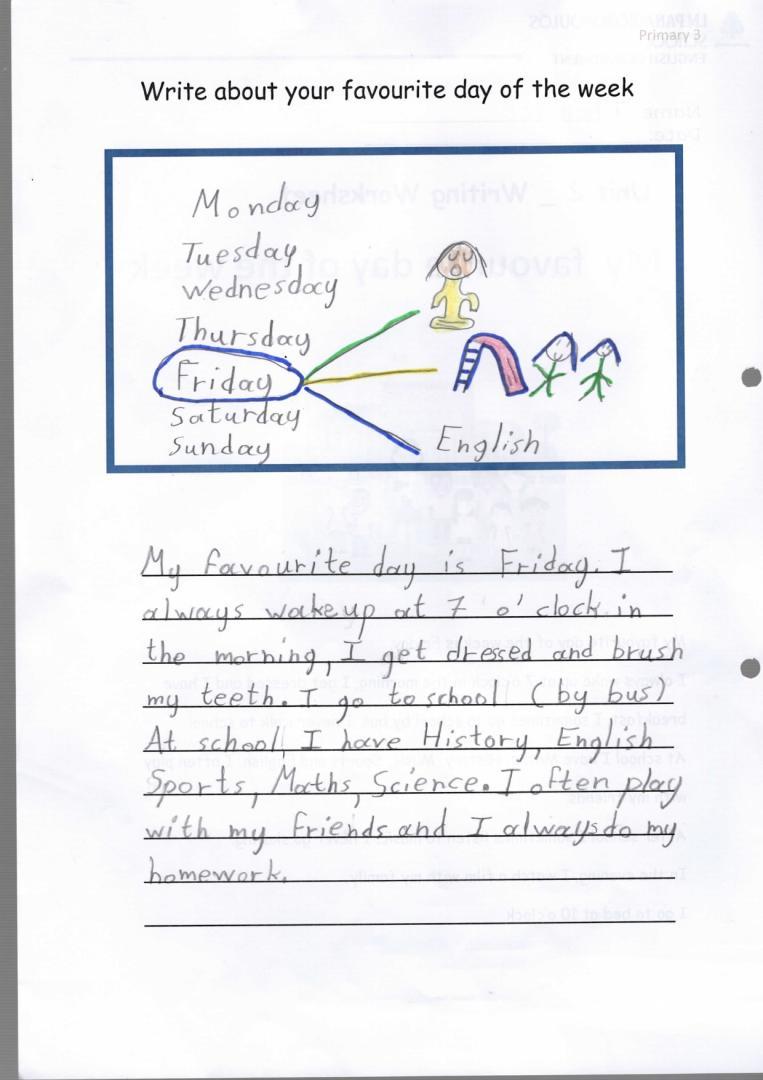 Primary 3
Write about your favourite day of the week
Monday
Tuesday
Wednesday
Thursday
Friday
Saturday
Sunday
English
My favourite day is Friday. I
always wake up at 7 o' clock in
the morning, I get dressed and brush
my teeth. I go to school (by bus)
At school I have History, English
Sports, Maths, Science. I often play
with my friends and I always do my
homework.